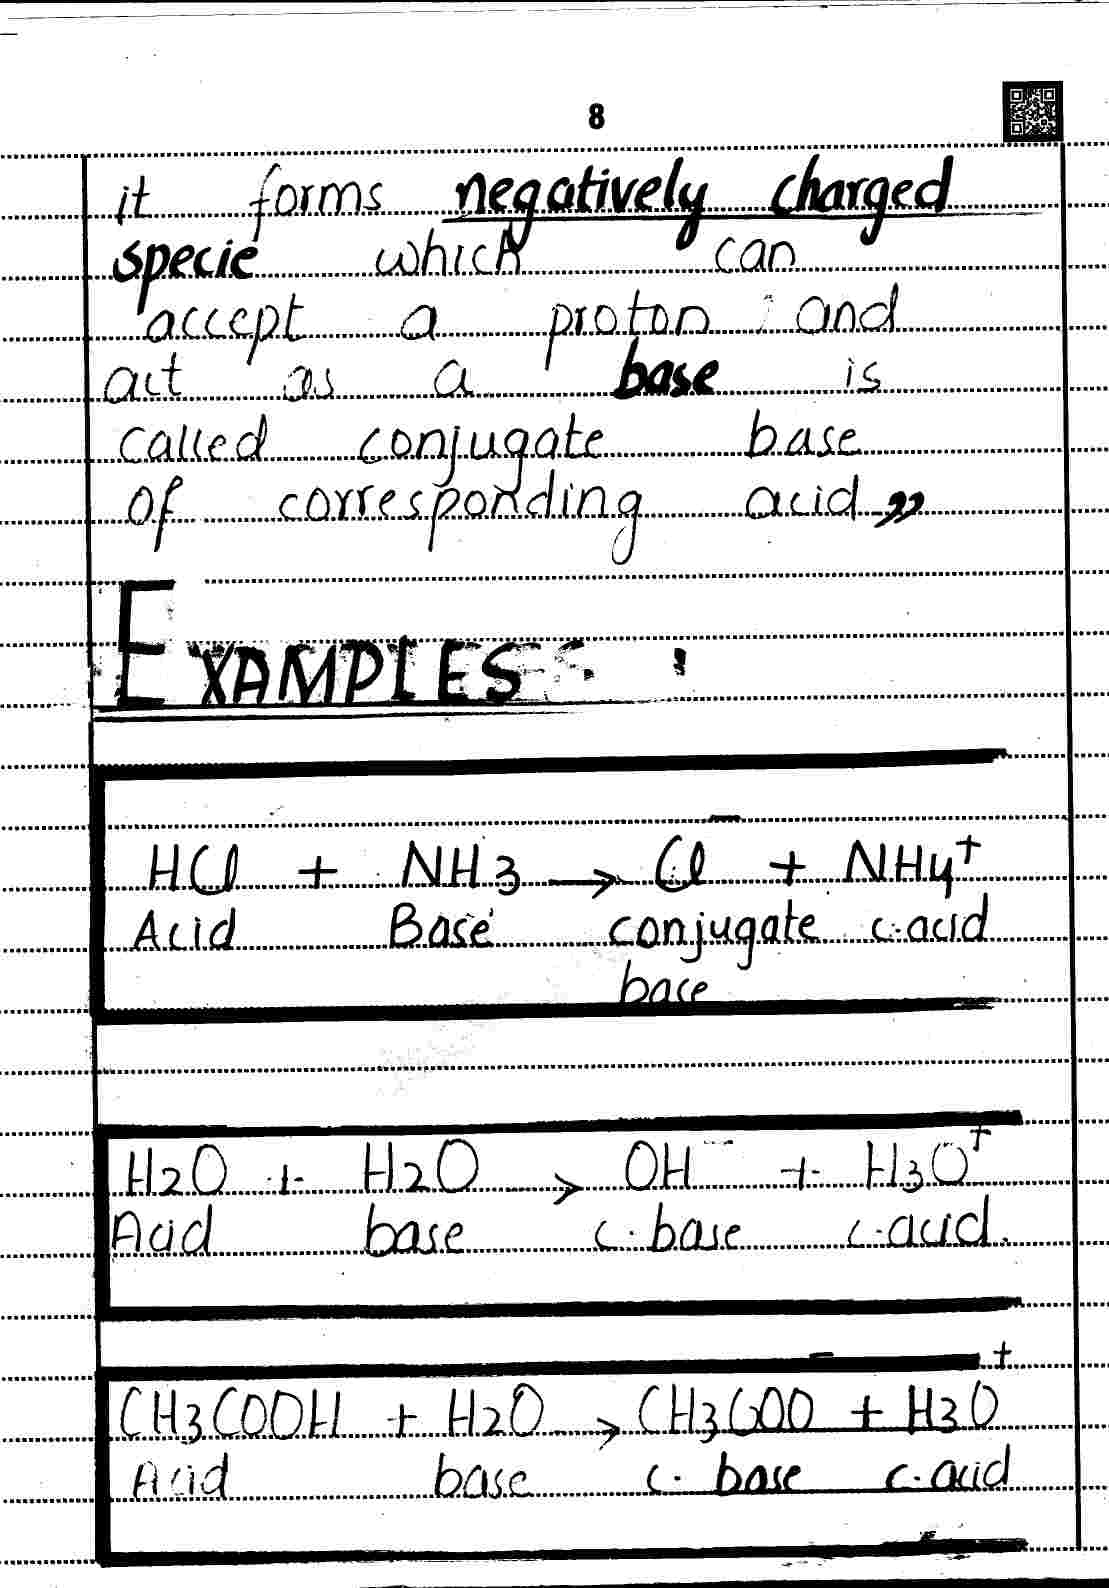 8
it forms negatively charged
specie which can
accept a proton and
act as a base is
called conjugate base
of corresponding acid”
EXAMPLES :
HCl + NH3 → Cl⁻ + NHy⁺
Acid Base conjugate c.acid
base
H2O + H2O → OH⁻ + H3O⁺
Acid base c.base c.acid.
CH3COOH + H2O → CH3COO⁻ + H3O⁺
Acid base c. base c.acid